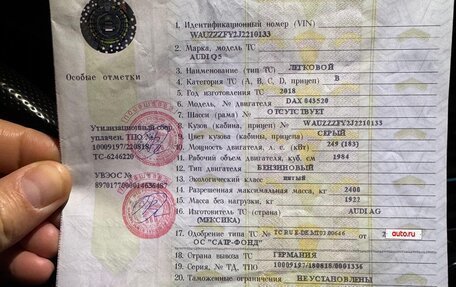 1. Идентификационный номер (VIN)
WAUZZZFY2J2210133
2. Марка, модель ТС
AUDI Q5
3. Наименование (тип ТС) ЛЕГКОВОЙ
4. Категория ТС (А, В, С, D, прицеп) В
Особые отметки
5. Год изготовления ТС 2018
6. Модель, № двигателя DAX 043520
7. Шасси (рама) № ОТСУТСТВУЕТ
8. Кузов (кабина, прицеп) № WAUZZZFY2J2210133
Утилизационный сбор
9. Цвет кузова (кабины, прицепа) СЕРЫЙ
уплачен. ТПО №
10. Мощность двигателя, л. с. (кВт) 249 (183)
10009197/220818/
11. Рабочий объем двигателя, куб. см 1984
ТС-6246220
12. Тип двигателя БЕНЗИНОВЫЙ
13. Экологический класс пятый
УВЭОС №
14. Разрешенная максимальная масса, кг 2400
15. Масса без нагрузки, кг 1922
16. Изготовитель ТС (страна) AUDI AG
(МЕКСИКА)
17. Одобрение типа ТС № от
auto.ru
ОС "САТР-ФОНД"
18. Страна вывоза ТС ГЕРМАНИЯ
19. Серия, № ТД, ТПО 10009197/180818/0001336
20. Таможенные ограничения НЕ УСТАНОВЛЕНЫ